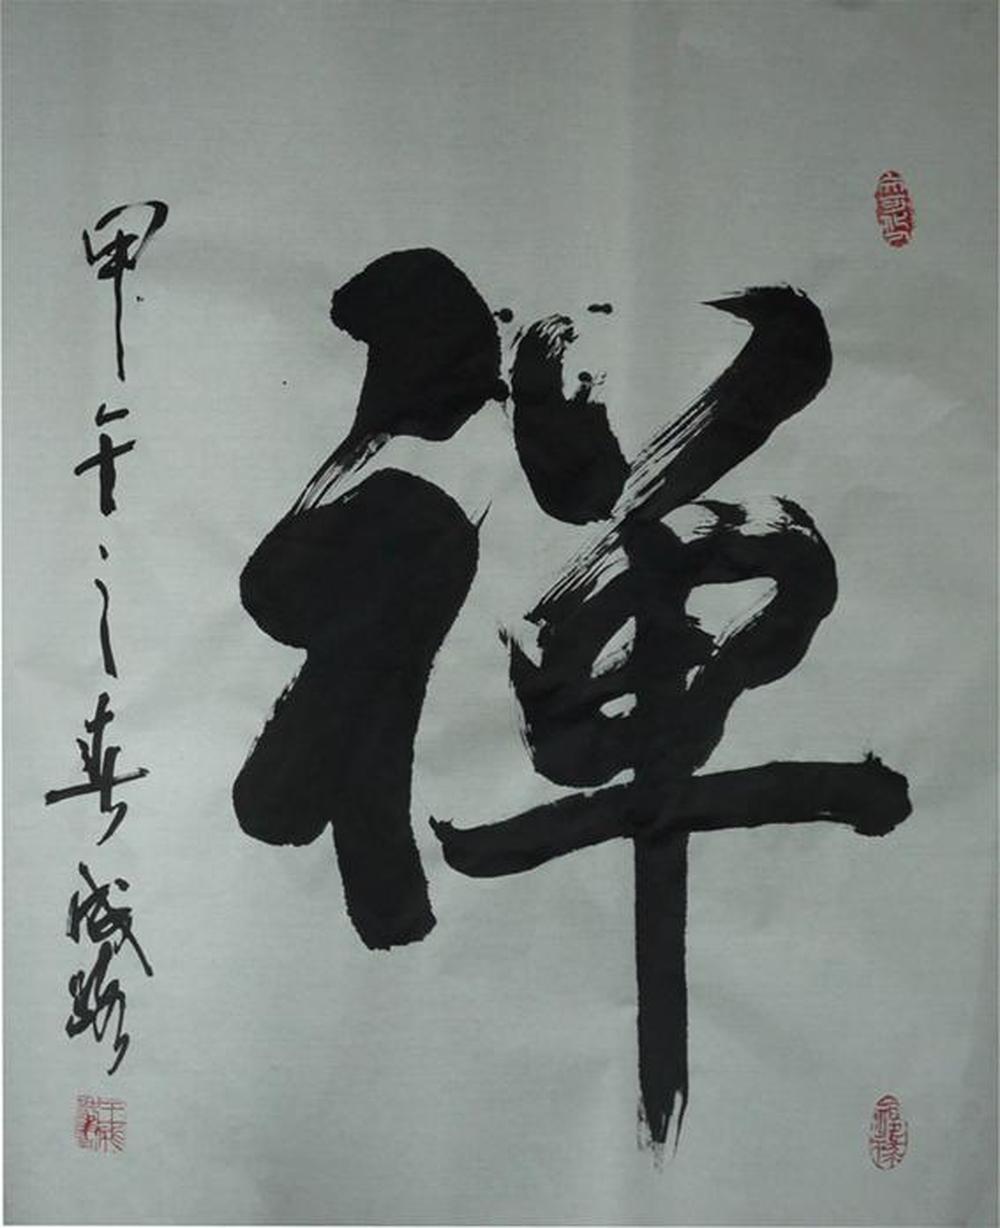 禅
甲午之春成路